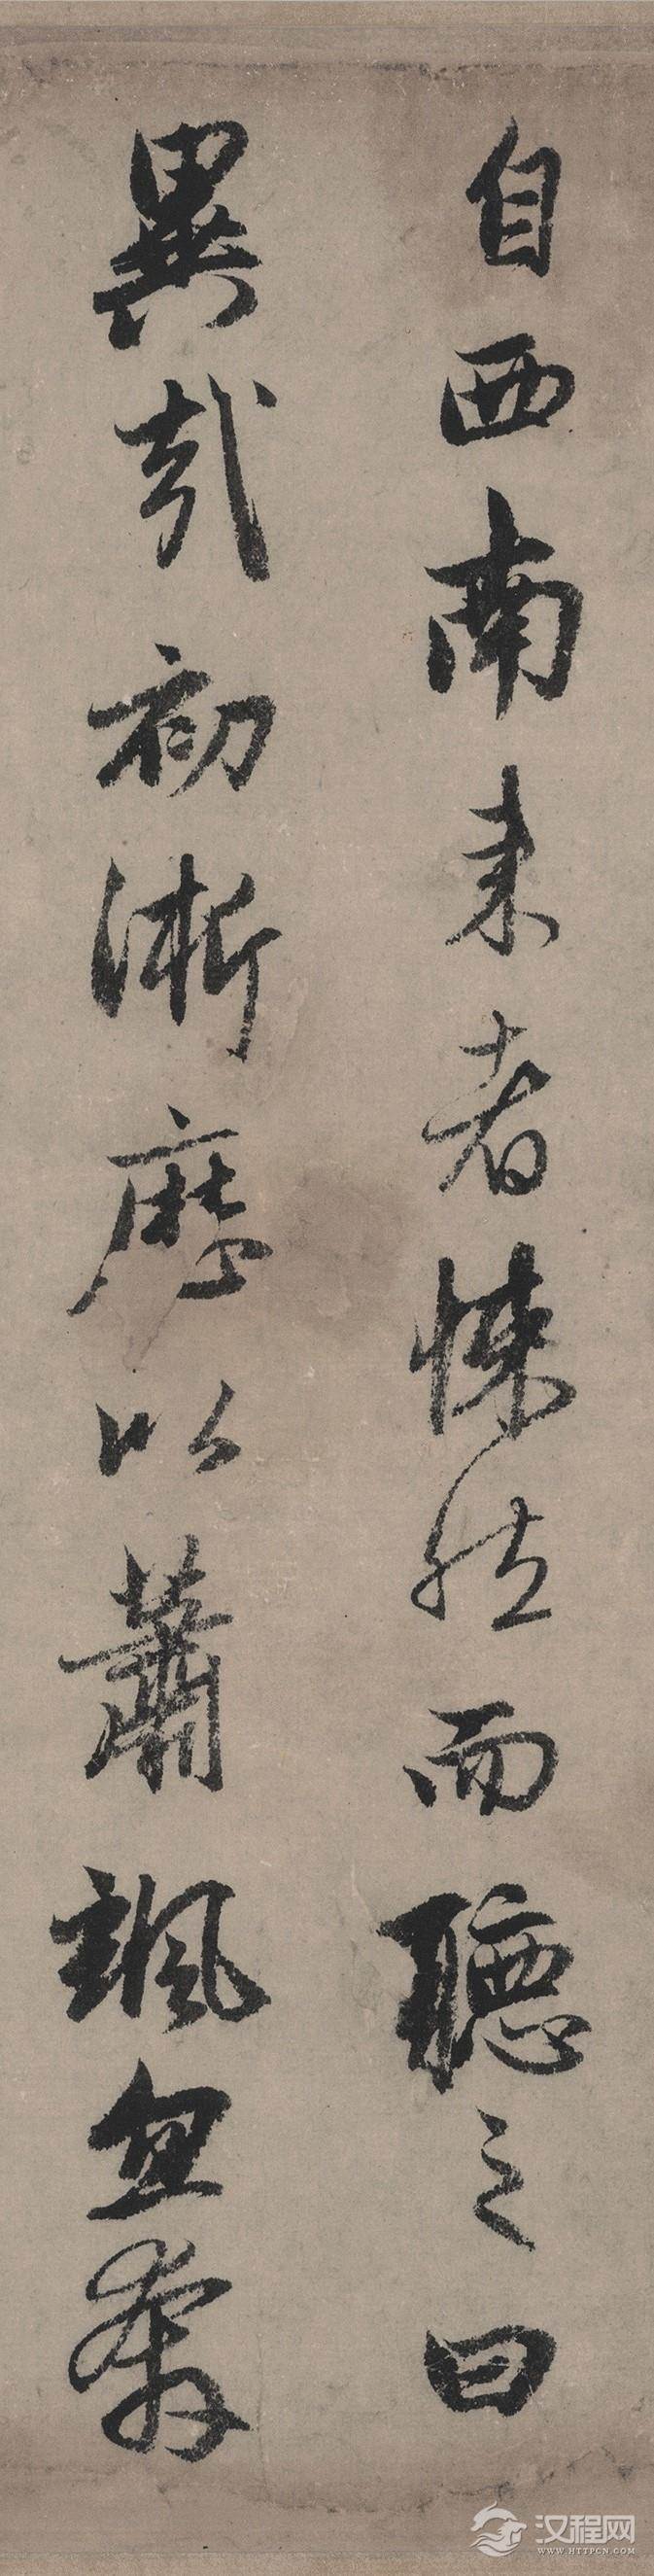 自西南来者悚然而聽之曰
異哉初淅歷以蕭颯忽奔
汉程网
WWW.HTTPCN.COM